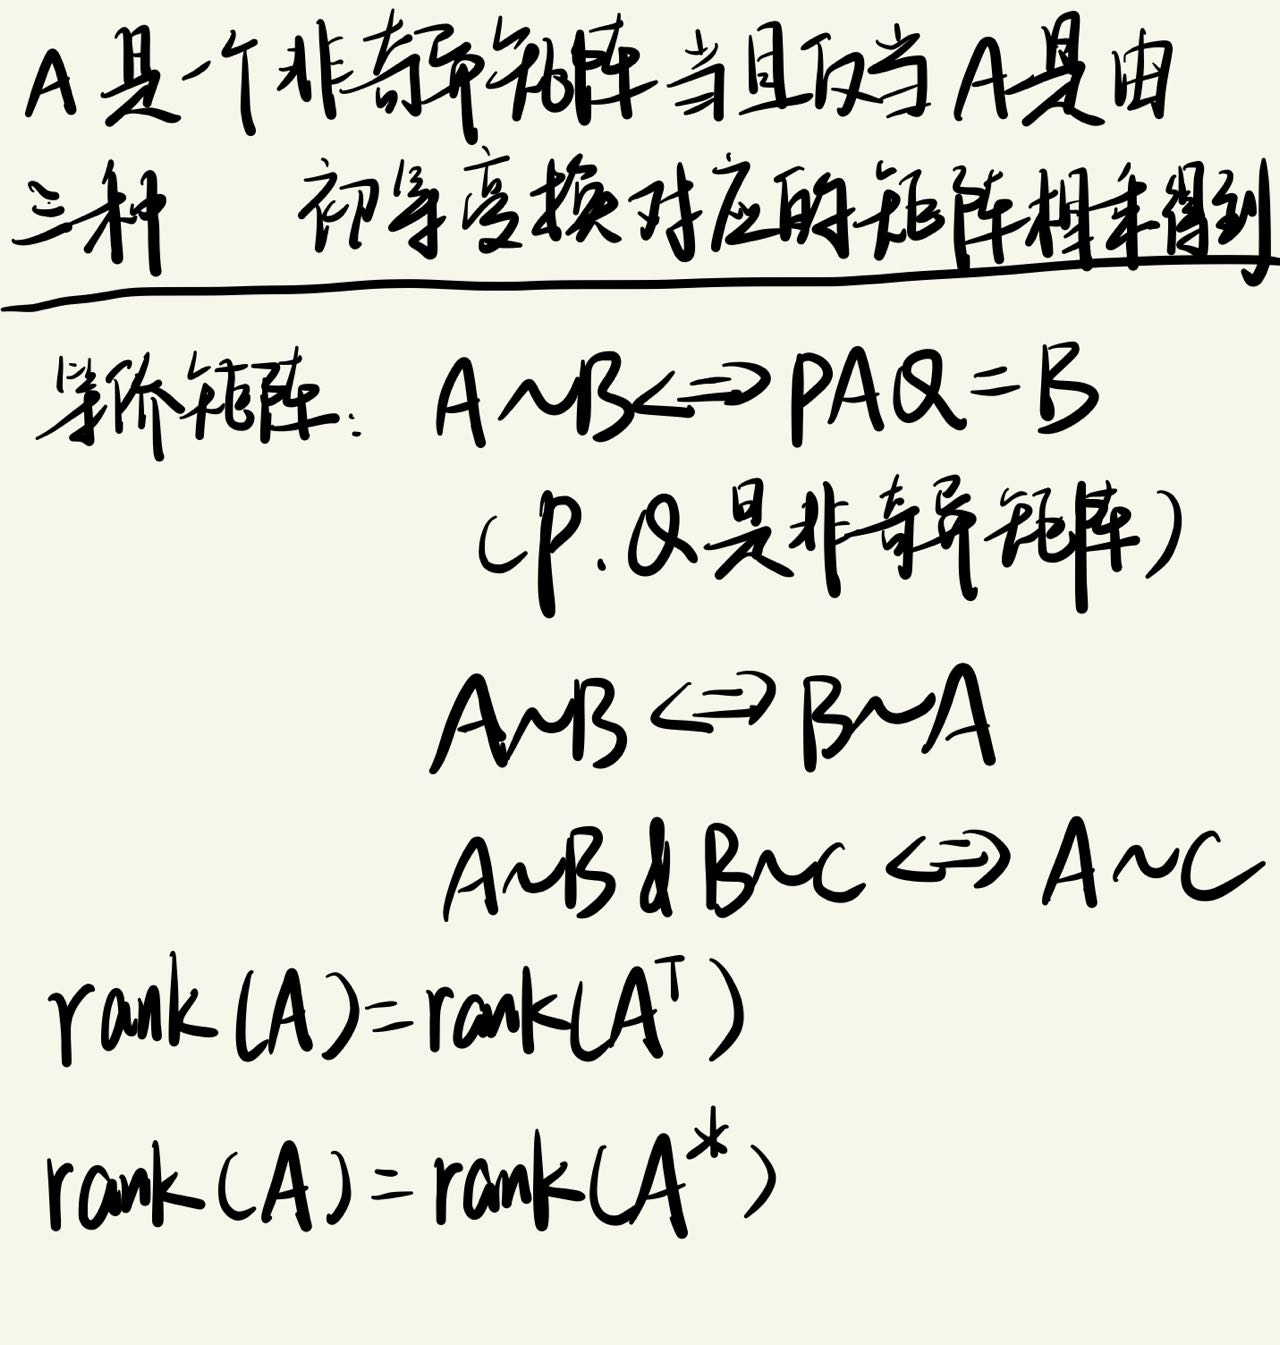 A是一个非奇异矩阵当且仅当A是由
三种 初等变换对应的矩阵相乘得到
等价矩阵: A~B⇔PAQ=B
(P.Q是非奇异矩阵)
A~B⇔B~A
A~B & B~C⇔A~C
rank(A)=rank(Aᵀ)
rank(A)=rank(A*)